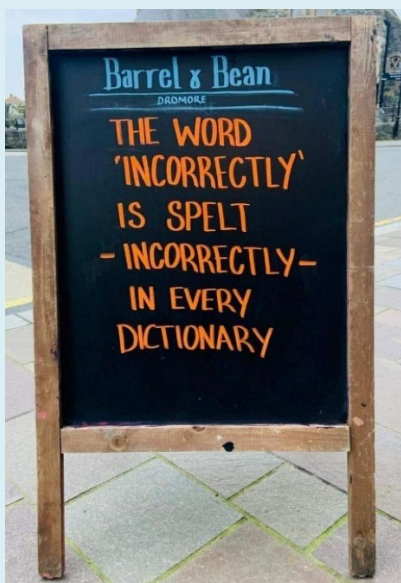 Barrel & Bean
DROMORE
THE WORD
'INCORRECTLY'
IS SPELT
- INCORRECTLY -
IN EVERY
DICTIONARY